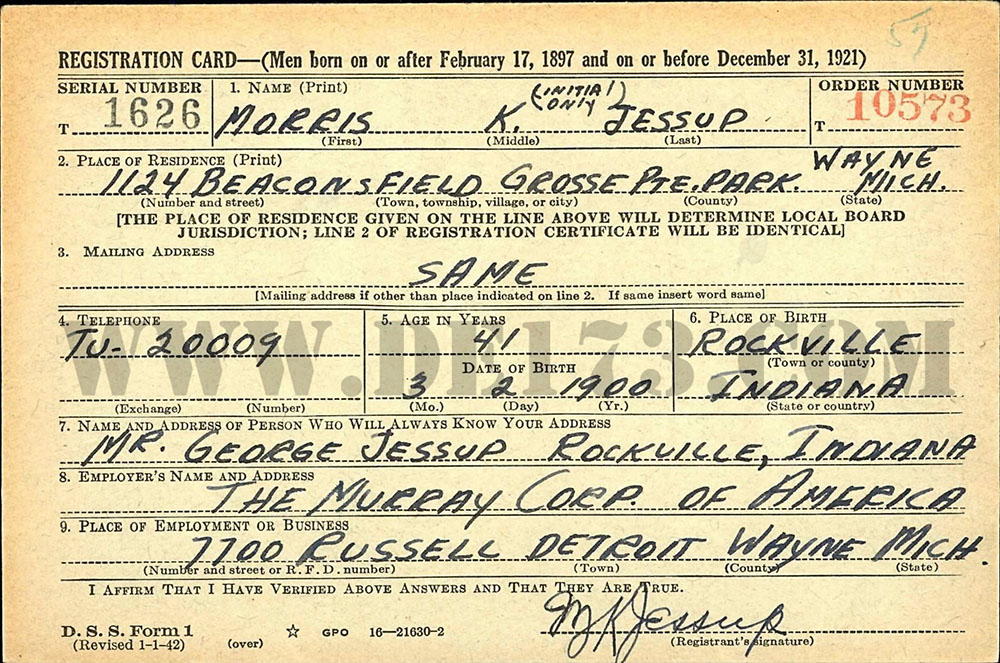 59
REGISTRATION CARD—(Men born on or after February 17, 1897 and on or before December 31, 1921)
SERIAL NUMBER
T 1626
1. NAME (Print)
MORRIS K. (INITIAL ONLY) JESSUP
(First) (Middle) (Last)
ORDER NUMBER
T 10573
2. PLACE OF RESIDENCE (Print)
1124 BEACONSFIELD GROSSE PTE. PARK. WAYNE MICH.
(Number and street) (Town, township, village, or city) (County) (State)
[THE PLACE OF RESIDENCE GIVEN ON THE LINE ABOVE WILL DETERMINE LOCAL BOARD
JURISDICTION; LINE 2 OF REGISTRATION CERTIFICATE WILL BE IDENTICAL]
3. MAILING ADDRESS
SAME
[Mailing address if other than place indicated on line 2. If same insert word same]
4. TELEPHONE
TU- 20009
(Exchange) (Number)
5. AGE IN YEARS
41
DATE OF BIRTH
3 2 1900
(Mo.) (Day) (Yr.)
6. PLACE OF BIRTH
ROCKVILLE
(Town or county)
INDIANA
(State or country)
WWW.DE173.COM
7. NAME AND ADDRESS OF PERSON WHO WILL ALWAYS KNOW YOUR ADDRESS
MR. GEORGE JESSUP ROCKVILLE, INDIANA
8. EMPLOYER'S NAME AND ADDRESS
THE MURRAY CORP. OF AMERICA
9. PLACE OF EMPLOYMENT OR BUSINESS
7700 RUSSELL DETROIT WAYNE MICH
(Number and street or R. F. D. number) (Town) (County) (State)
I AFFIRM THAT I HAVE VERIFIED ABOVE ANSWERS AND THAT THEY ARE TRUE.
M K Jessup
D. S. S. Form 1
(Revised 1-1-42) (over) ☆ GPO 16—21630-2
(Registrant's signature)